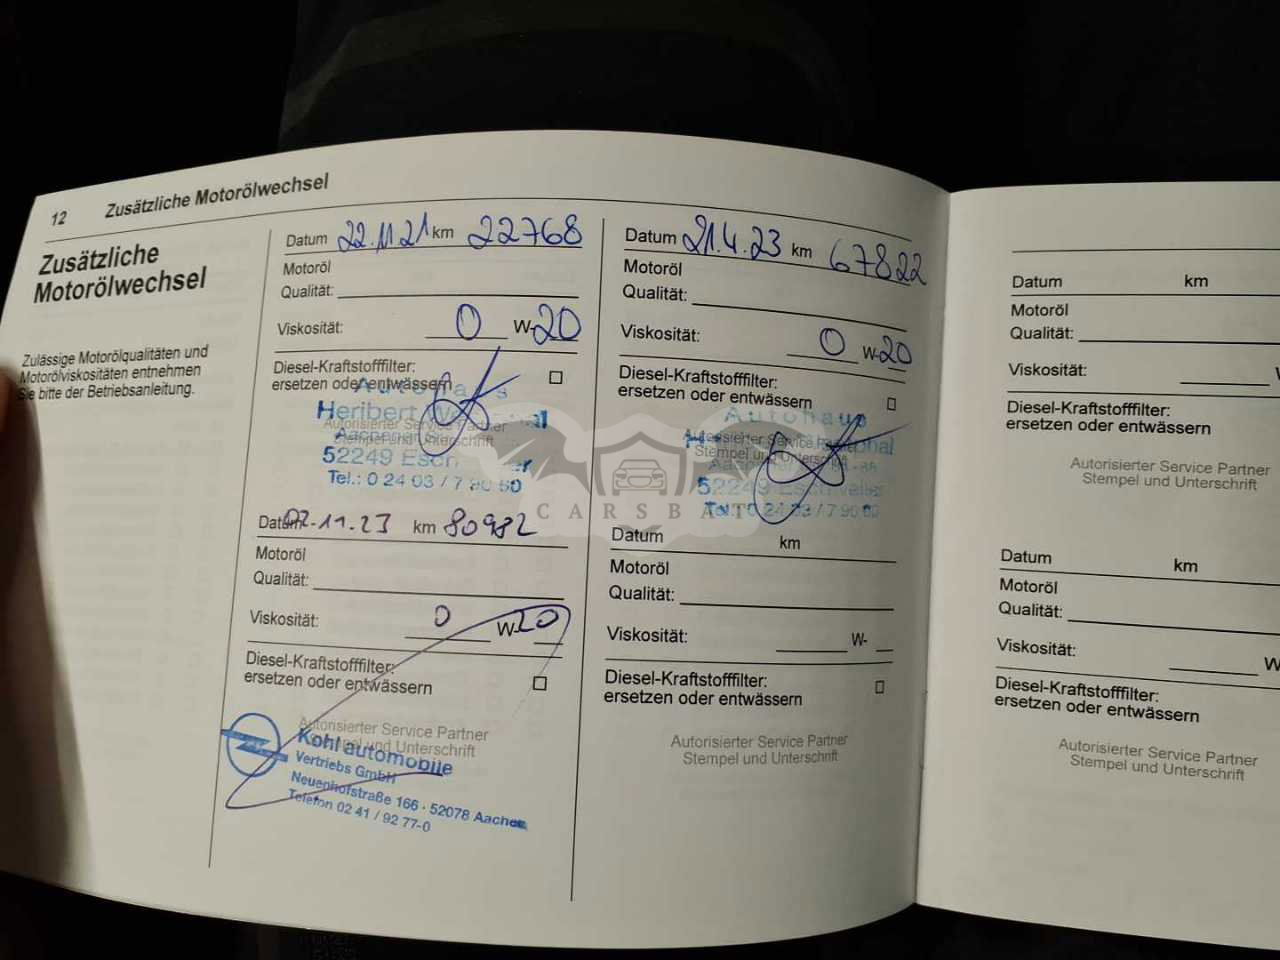 12 Zusätzliche Motorölwechsel
Zusätzliche
Motorölwechsel
Zulässige Motorölqualitäten und
Motorölviskositäten entnehmen
Sie bitte der Betriebsanleitung.
Datum 22.11.21 km 22768
Motoröl
Qualität:
Viskosität: 0 W-20
Diesel-Kraftstofffilter:
ersetzen oder entwässern
Autohaus
Heribert
Autorisierter Service Partner
Stempel und Unterschrift
52249
Tel.: 0 24 03 / 7 90 60
Datum 02-11.23 km 80982
Motoröl
Qualität:
Viskosität: 0 W-20
Diesel-Kraftstofffilter:
ersetzen oder entwässern
Autorisierter Service Partner
Stempel und Unterschrift
Kohl automobile
Vertriebs GmbH
Neuenhofstraße 166 · 52078 Aachen
Telefon 02 41 / 92 77-0
Datum 21.4.23 km 67822
Motoröl
Qualität:
Viskosität: 0 W-20
Diesel-Kraftstofffilter:
ersetzen oder entwässern
Autohaus
Autorisierter Service Partner
Stempel und Unterschrift
52249 Eschweiler
Tel.: 0 24 03 / 7 90 60
CARSBAT
Datum km
Motoröl
Qualität:
Viskosität: W-
Diesel-Kraftstofffilter:
ersetzen oder entwässern
Autorisierter Service Partner
Stempel und Unterschrift
Datum km
Motoröl
Qualität:
Viskosität: W
Diesel-Kraftstofffilter:
ersetzen oder entwässern
Autorisierter Service Partner
Stempel und Unterschrift
Datum km
Motoröl
Qualität:
Viskosität: W
Diesel-Kraftstofffilter:
ersetzen oder entwässern
Autorisierter Service Partner
Stempel und Unterschrift